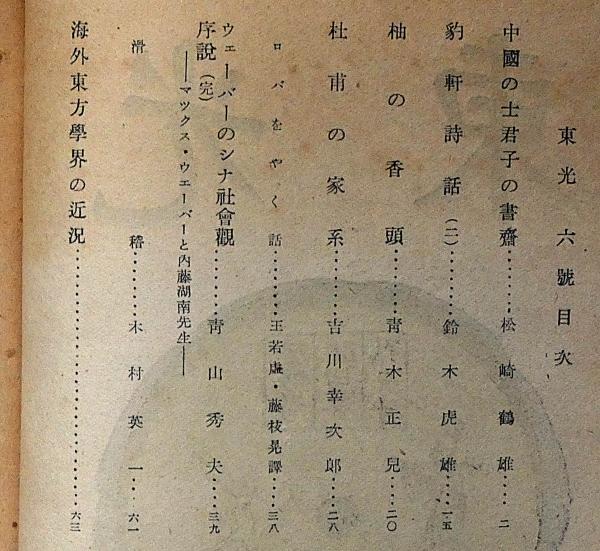 東光 六號目次
中國の士君子の書齋………松崎鶴雄……二
豹軒詩話(二)………鈴木虎雄……一五
柚の香頭………靑木正兒……二〇
杜甫の家系………吉川幸次郎……二八
ロバをやく話………王若虛・藤枝晃譯……三八
ウェーバーのシナ社會觀………靑山秀夫……三九
序說(完)
――マックス・ウェーバーと內藤湖南先生――
滑稽………木村英一……六一
海外東方學界の近況………六三